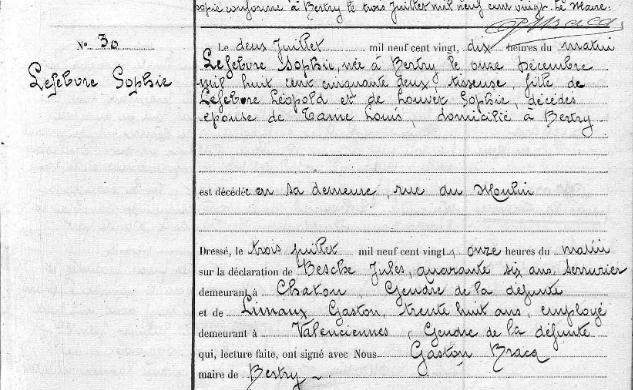 copie conforme à Bertry le trois Juillet mil neuf cent vingt Le Maire.
GBracq
No 30
Lefebvre Sophie
Le deux Juillet mil neuf cent vingt, dix heures du matin
Lefebvre Sophie, née à Bertry le onze Décembre
mil huit cent cinquante deux, tisseuse, fille de
Lefebvre Léopold et de Louvet Sophie, décédés
épouse de Tame Louis, domicilié à Bertry
est décédée en sa demeure, rue du Moulin
Dressé, le trois juillet mil neuf cent vingt, onze heures du matin
sur la déclaration de Besche Jules, quarante six ans serrurier
demeurant à Chatou, Gendre de la défunte
et de Limaux Gaston, trente huit ans, employé
demeurant à Valenciennes, Gendre de la défunte
qui, lecture faite, ont signé avec Nous Gaston Bracq
maire de Bertry